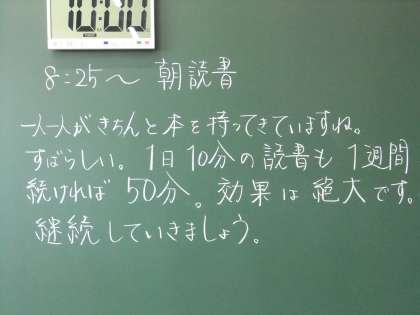 10:00
8:25～ 朝読書
一人一人がきちんと本を持ってきていますね。
すばらしい。1日10分の読書も1週間
続ければ50分。効果は絶大です。
継続していきましょう。